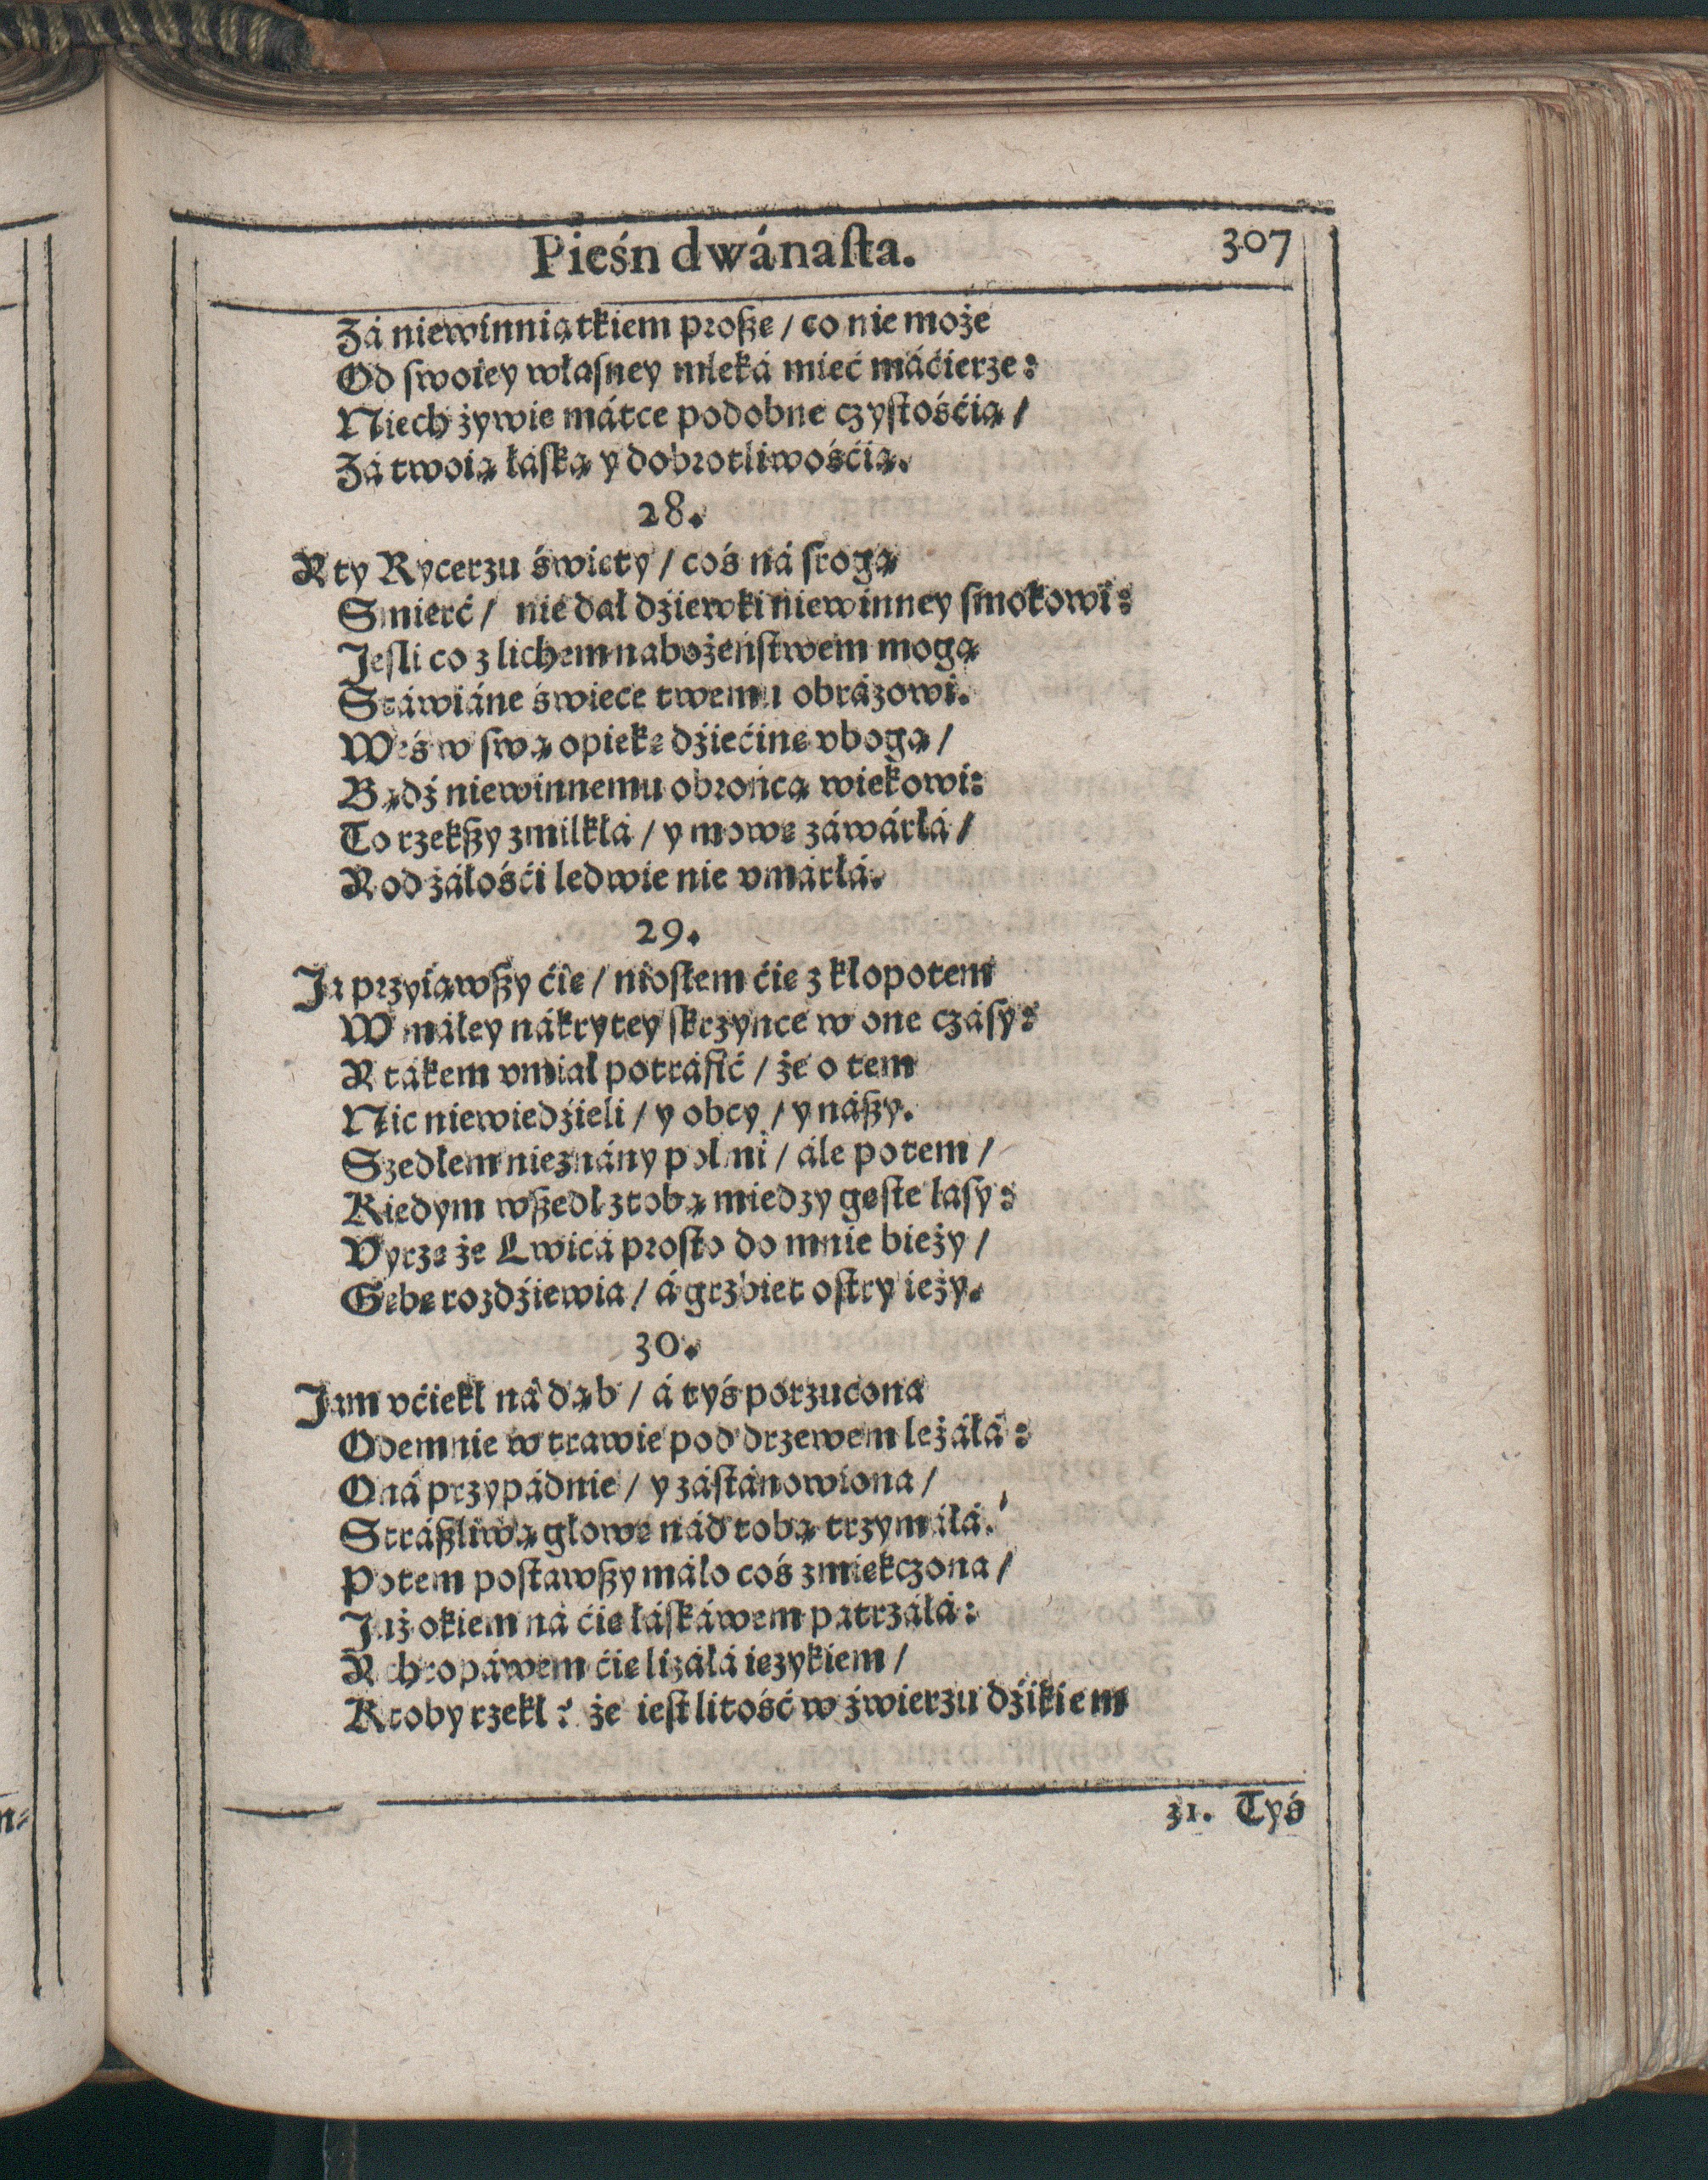 Pieśń dwánaſta. 307
Zá niewinniątkiem proßę / co nie może
Od ſwoiey własney mleká mieć máćierze:
Niech żywie mátce podobne czyſtośćią /
Zá twoią łáſką y dobrotliwośćią.
28.
A ty Rycerzu święty / coś ná ſrogą
Smierć / nie dał dźiewki niewinney ſmokowi:
Jeſli co z lichem nabożeńſtwem mogą
Stáwiáne świece twemu obrázowi.
Weś w ſwą opiekę dźiećinę vbogą /
Bądź niewinnemu obrońcą wiekowi:
To rzekßy zmilkłá / y mowę záwárłá /
A od żáłośći ledwie nie vmárłá.
29.
Ja przyiąwßy ćię / niosłem ćię z kłopotem
W máłey nákrytey skrzynce w one czásy:
A tákem vmiał potráfić / że o tem
Nic niewiedźieli / y obcy / y náßy.
Szedłem nieznány polmi / ále potem /
Kiedym wßedł z tobą miedzy gęſte laſy:
Vyrzę że Lwicá proſto do mnie bieży /
Gębę rozdźiewia / á grzbiet oſtry ieży.
30.
Jam vćiekł ná dąb / á tyś porzucona
Odemnie w trawie pod drzewem leżáłá:
Oná przypádnie / y záſtánowiona /
Stráßliwą głowę nád tobą trzymáłá.
Potem poſtawßy máło coś zmiękczona /
Już okiem ná ćię łáſkáwem patrzáłá:
A chropáwem ćię lizáłá ięzykiem /
Ktoby rzekł? że ieſt litość w źwierzu dźikiem
31. Tyś
n⸗